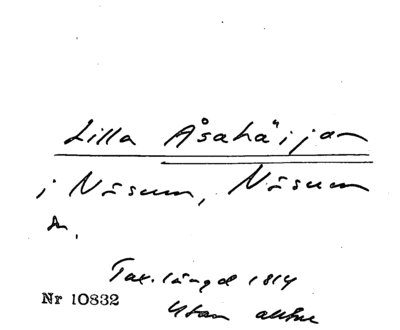 Lilla Åsahäijan
i Näsum, Näsum
sn.
Tax.längd 1814
Nr 10832
Utan